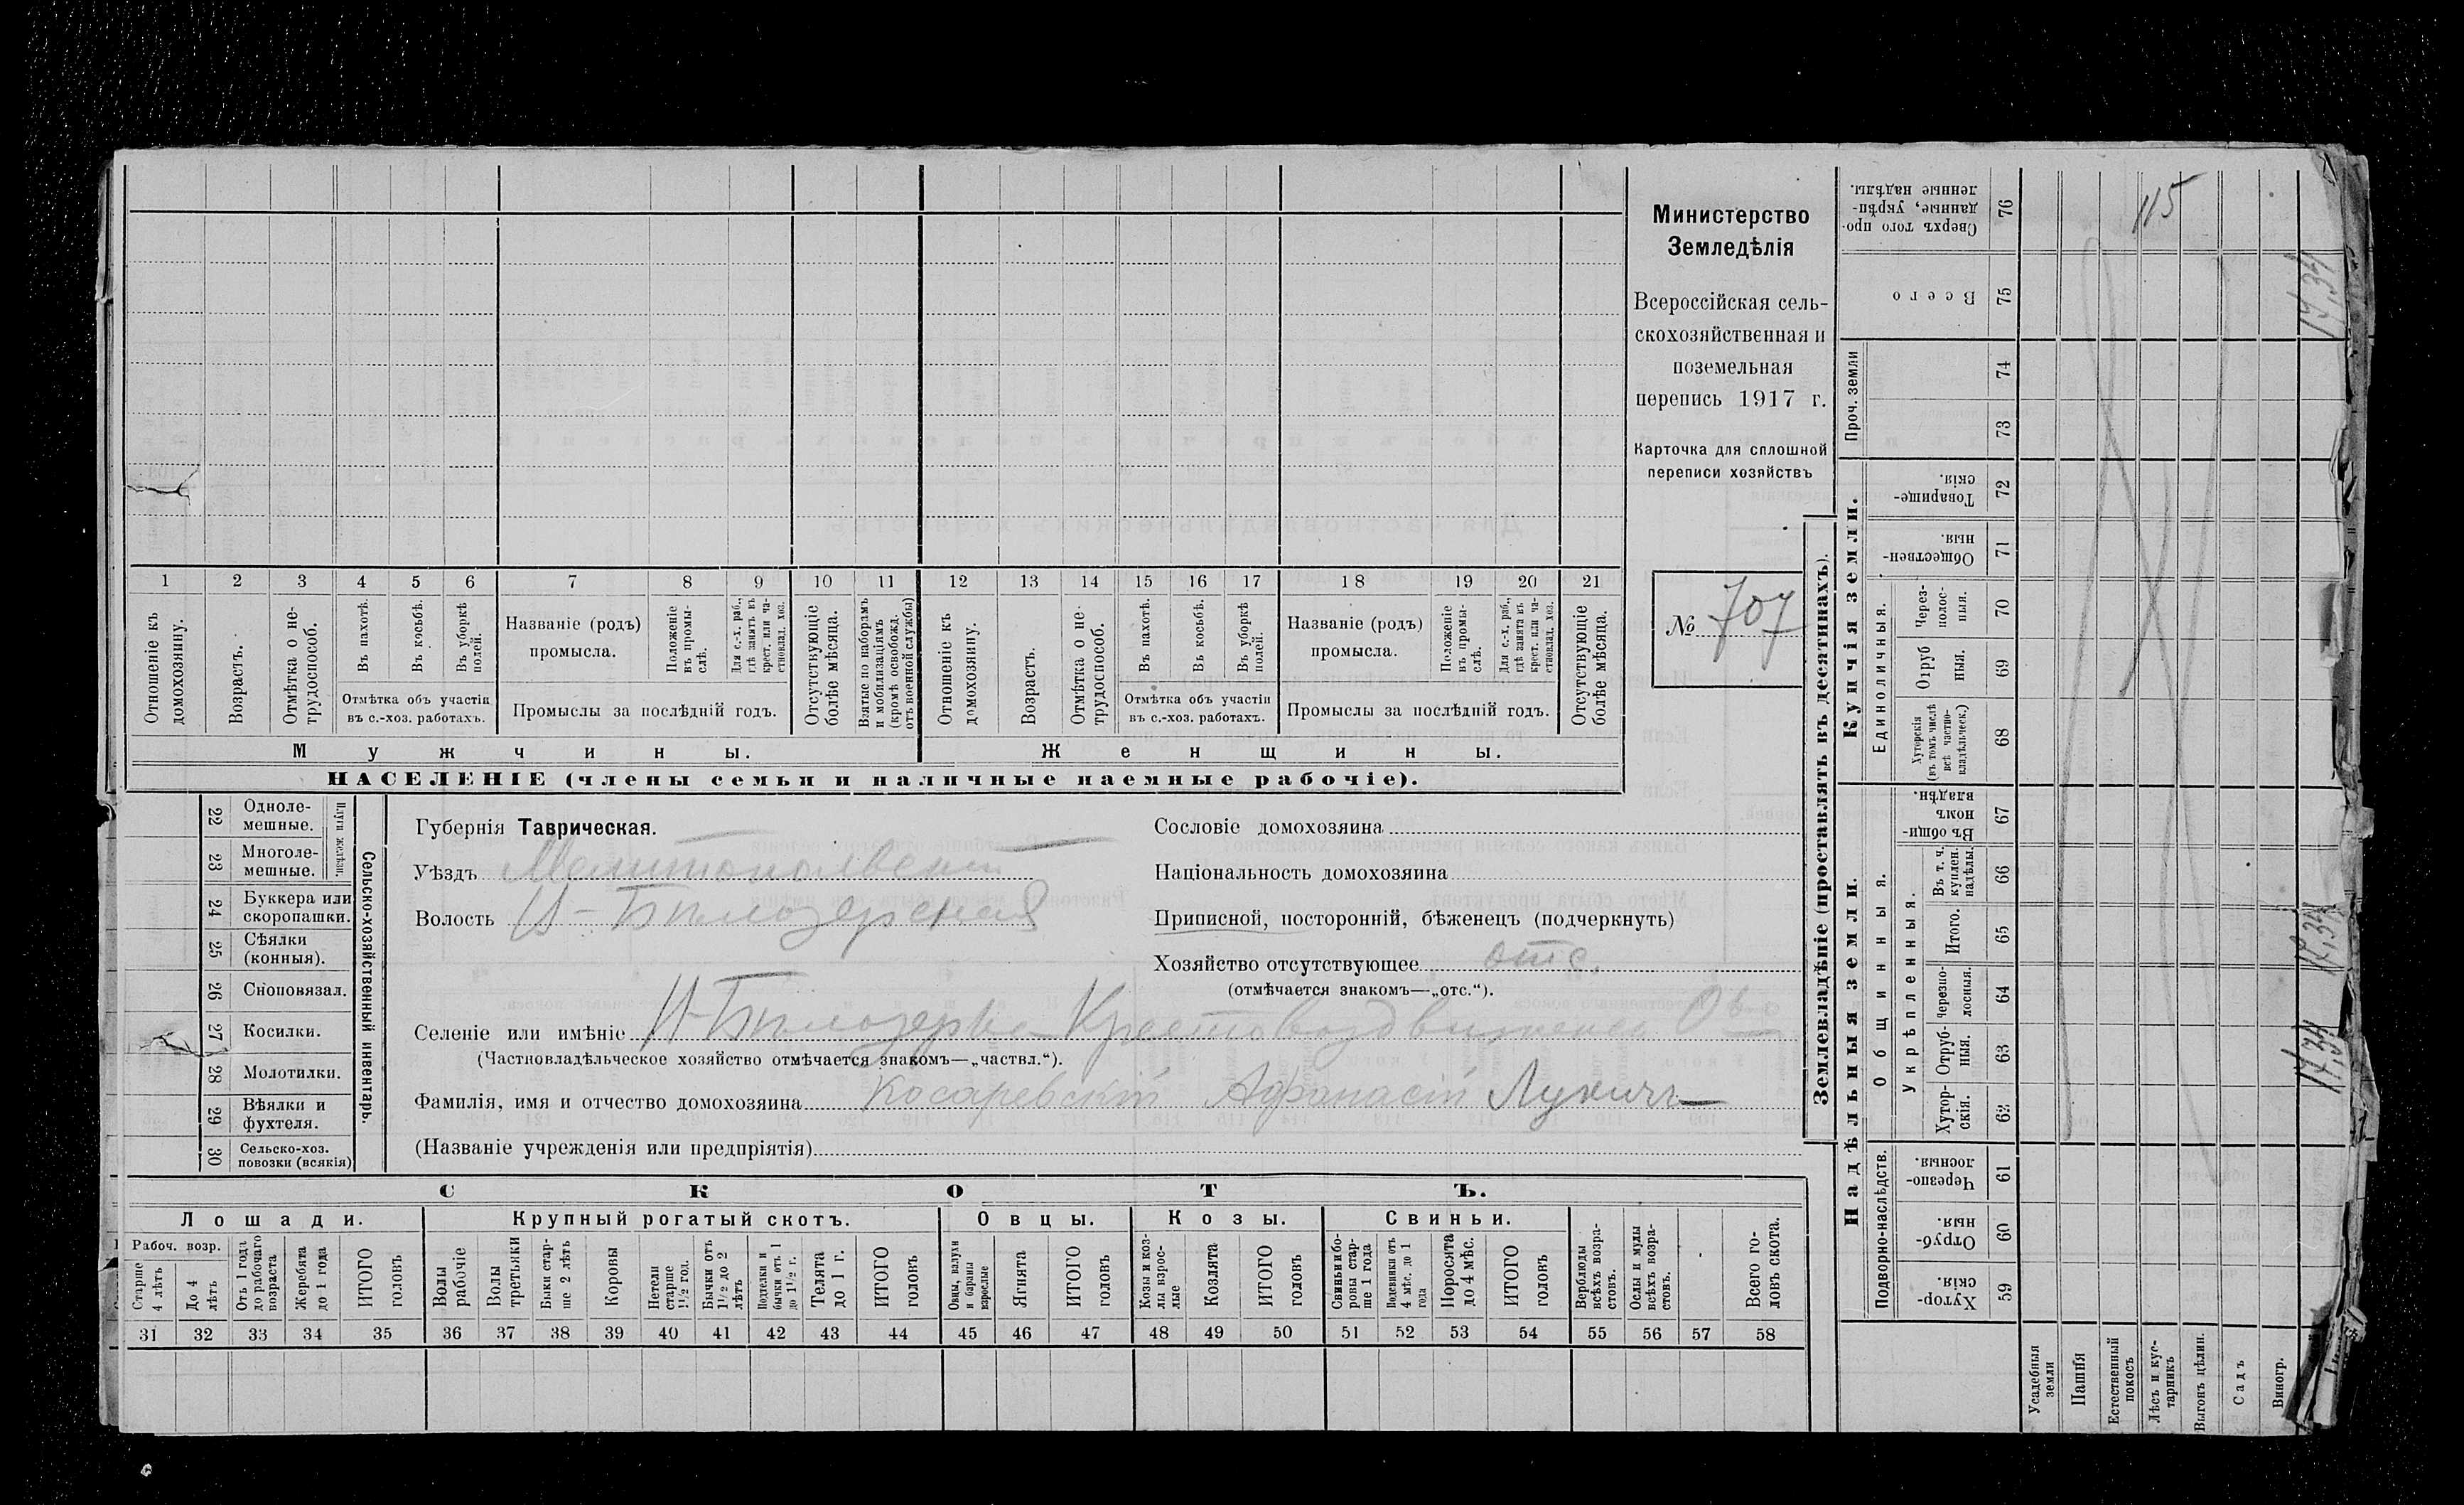 1 2 3 4 5 6 7 8 9 10 11 12 13 14 15 16 17 18 19 20 21
Отношеніе къ домохозяину.
Возрастъ.
Отмѣтка о не-
трудоспособ.
Въ пахотѣ.
Въ косьбѣ.
Въ уборкѣ
полей.
Отмѣтка объ участіи
въ с.-хоз. работахъ.
Названіе (родъ)
промысла.
Положеніе
въ промы-
слѣ.
Для с.-х. раб.,
гдѣ занятъ въ
крест. или ча-
стновлад. хоз.
Промыслы за послѣдній годъ.
Отсутствующіе
болѣе мѣсяца.
Взятые по наборамъ
и мобилизаціямъ
(кромѣ освобожд.
отъ военной службы)
Отношеніе къ
домохозяину.
Возрастъ.
Отмѣтка о не-
трудоспособ.
Въ пахотѣ.
Въ косьбѣ.
Въ уборкѣ
полей.
Отмѣтка объ участіи
въ с.-хоз. работахъ.
Названіе (родъ)
промысла.
Положеніе
въ промы-
слѣ.
Для с.-х. раб.,
гдѣ занята въ
крест. или ча-
стновлад. хоз.
Промыслы за послѣдній годъ.
Отсутствующіе
болѣе мѣсяца.
Мужчины.
Женщины.
НАСЕЛЕНІЕ (члены семьи и наличные наемные рабочіе).
Министерство
Земледѣлія
Всероссійская сель-
скохозяйственная и
поземельная
перепись 1917 г.
Карточка для сплошной
переписи хозяйствъ
№ 707
22 Одноле-
мешные.
23 Многоле-
мешные.
Плуги желѣзн.
24 Буккера или
скоропашки.
25 Сѣялки
(конныя).
26 Сноповязал.
27 Косилки.
28 Молотилки.
29 Вѣялки и
фухтеля.
30 Сельско-хоз.
повозки (всякія)
Сельско-хозяйственный инвентарь.
Губернія Таврическая.
Уѣздъ Мелитопольскій
Волость Н-Бѣлозерская
Селеніе или имѣніе Н-Бѣлозерка Крестовоздвиженск О-во
(Частновладѣльческое хозяйство отмѣчается знакомъ—„частвл.“).
Фамилія, имя и отчество домохозяина Косаревскій Афанасій Лукичъ
(Названіе учрежденія или предпріятія)
Сословіе домохозяина
Національность домохозяина
Приписной, посторонній, бѣженецъ (подчеркнуть)
Хозяйство отсутствующее отс.
(отмѣчается знакомъ—„отс.“).
СКОТЪ.
Лошади.
Крупный рогатый скотъ.
Овцы.
Козы.
Свиньи.
Рабоч. возр.
Старше
4 лѣтъ
До 4
лѣтъ
Отъ 1 года
до рабочаго
возраста
Жеребята
до 1 года
ИТОГО
головъ
Волы
рабочіе
Волы
третьяки
Быки стар-
ше 2 лѣтъ
Коровы
Нетели
старше
1½ год.
Бычки отъ
1½ до 2
лѣтъ
Подтелки и
бычки отъ 1
до 1½ г.
Телята
до 1 г.
ИТОГО
головъ
Овцы, валухи
и бараны
взрослые
Ягнята
ИТОГО
головъ
Козы и коз-
лы взрос-
лые
Козлята
ИТОГО
головъ
Свиньи и бо-
ровы стар-
ше 1 года
Подсвинки отъ
4 мѣс. до 1
года
Поросята
до 4 мѣс.
ИТОГО
головъ
Верблюды
всѣхъ возра-
стовъ.
Ослы и мулы
всѣхъ возра-
стовъ.
Всего го-
ловъ скота.
31 32 33 34 35 36 37 38 39 40 41 42 43 44 45 46 47 48 49 50 51 52 53 54 55 56 57 58
Землевладѣніе (проставлять въ десятинахъ).
Купчія земли.
Сверхъ того про-
данные, укрѣп-
ленные надѣлы.
76
115
Всего
75
17,34
Проч. земли
74
73
Товарище-
скія.
72
Обществен-
ныя.
71
Единоличныя.
Через-
полос-
ныя.
70
Отруб
ныя.
69
Хуторскія
(въ томъ числѣ
всѣ частно-
владѣльческ.)
68
Надѣльныя земли.
Общинныя.
Въ общи-
номъ
владѣн.
67
Укрѣпленныя.
Въ т. ч.
куплен.
надѣлы.
66
Итого.
65
17,34
Черезпо-
лосныя.
64
Отруб-
ныя.
63
17,34
Хутор-
скія.
62
Подворно-наслѣдств.
Черезпо-
лосныя.
61
Отруб-
ныя.
60
Хутор-
скія.
59
Усадебныя
земли
Пашня
Естественный
покосъ
Лѣсъ и кус-
тарникъ
Выгонъ цѣлин.
Садъ
Виногр.